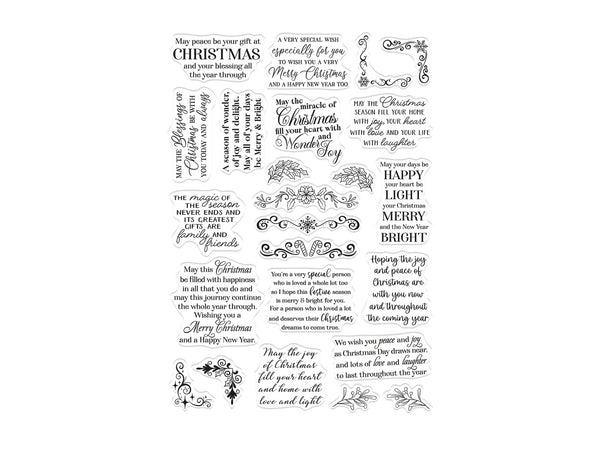 May peace be your gift at
CHRISTMAS
and your blessing all
the year through
A VERY SPECIAL WISH
especially for you
TO WISH YOU A VERY
Merry Christmas
AND A HAPPY NEW YEAR TOO
MAY THE Blessings OF
Christmas BE WITH
YOU TODAY AND always
A season of wonder,
of joy and delight.
May all of your days
be Merry & Bright
May the
miracle of
Christmas
fill your heart with
Wonder and
Joy
MAY THE Christmas
SEASON FILL YOUR HOME
WITH joy, YOUR heart
WITH love AND YOUR LIFE
WITH laughter
THE magic OF
THE season
NEVER ENDS AND
ITS GREATEST
GIFTS ARE
family AND
friends
May your days be
HAPPY
your heart be
LIGHT
your Christmas
MERRY
and the New Year
BRIGHT
May this Christmas
be filled with happiness
in all that you do and
may this journey continue
the whole year through.
Wishing you a
Merry Christmas
and a Happy New Year.
You're a very special person
who is loved a whole lot too
so I hope this festive season
is merry & bright for you.
For a person who is loved a lot
and deserves their Christmas
dreams to come true.
Hoping the joy
and peace of
Christmas are
with you now
and throughout
the coming year
May the joy
of Christmas
fill your heart
and home with
love and light
We wish you peace and joy
as Christmas Day draws near,
and lots of love and laughter
to last throughout the year